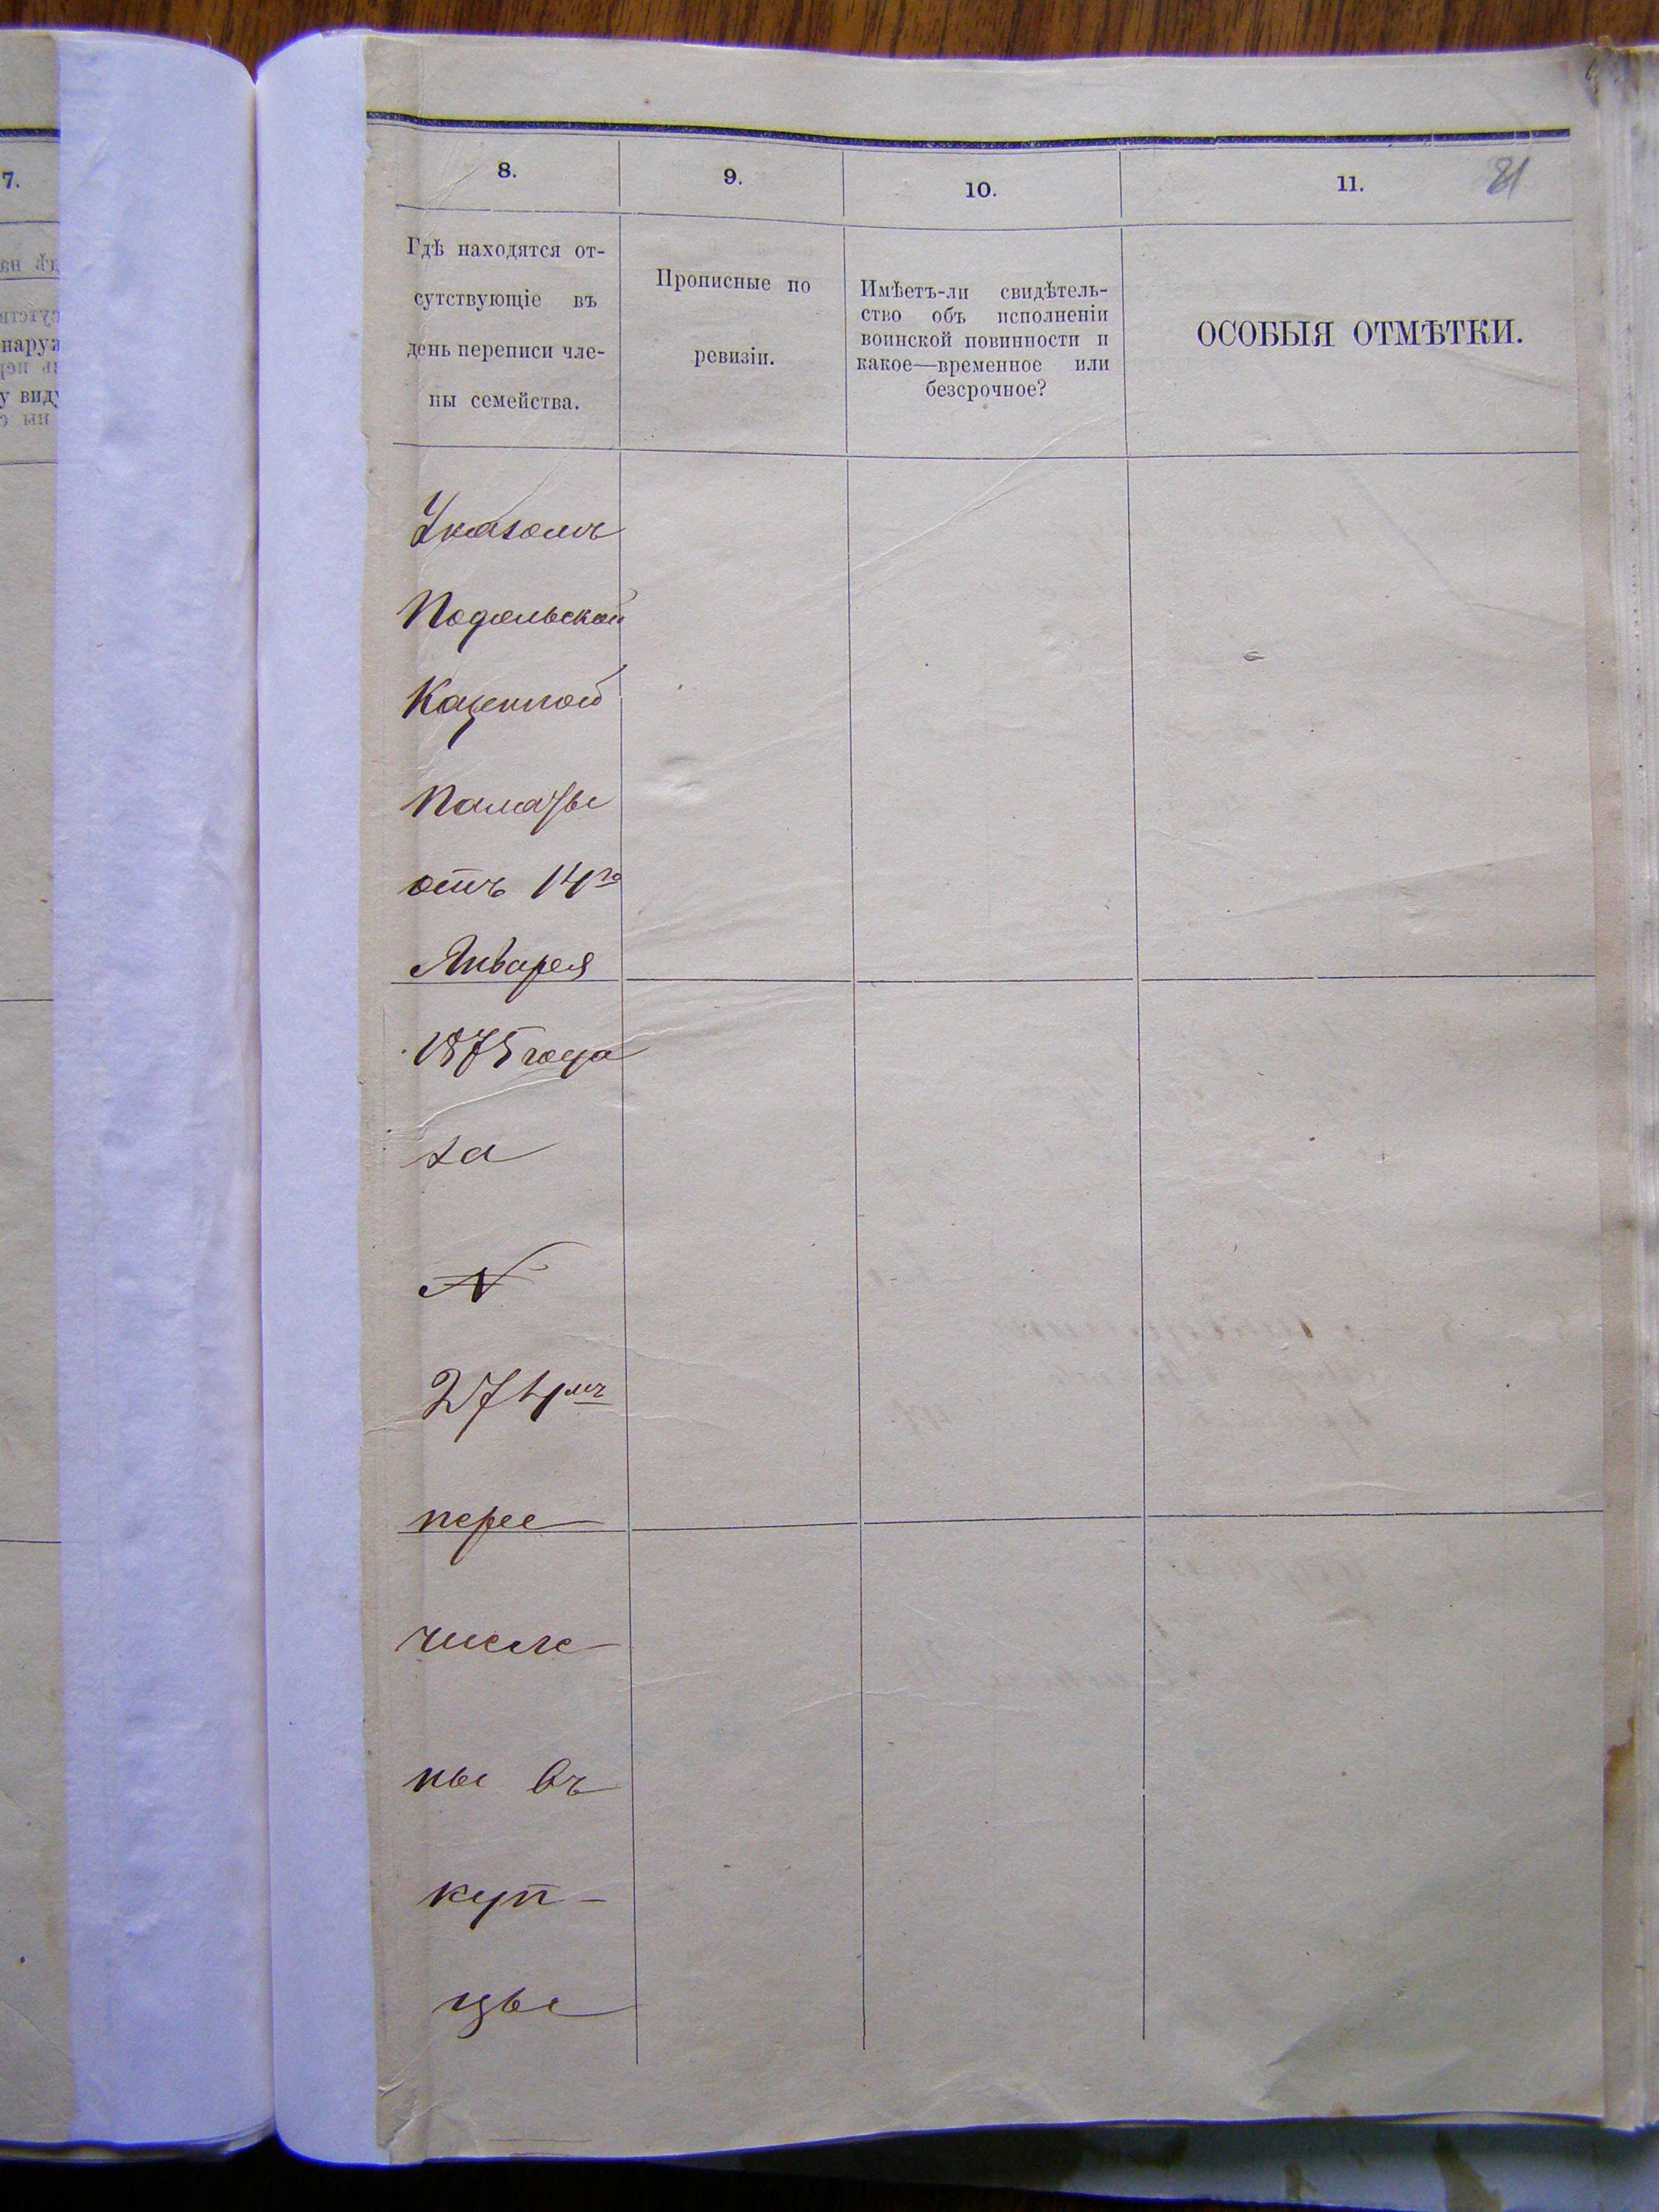 7.
наруж
у виду
8.
9.
10.
11.
81
Гдѣ находятся от-
сутствующіе въ
день переписи чле-
ны семейства.
Прописные по
ревизіи.
Имѣетъ-ли свидѣтель-
ство объ исполненіи
воинской повинности и
какое—временное или
безсрочное?
ОСОБЫЯ ОТМѢТКИ.
Указомъ
Подольской
Казенной
Палаты
отъ 14го
Января
1875 года
за
№
274мъ
пере
числе
ны въ
куп-
цы